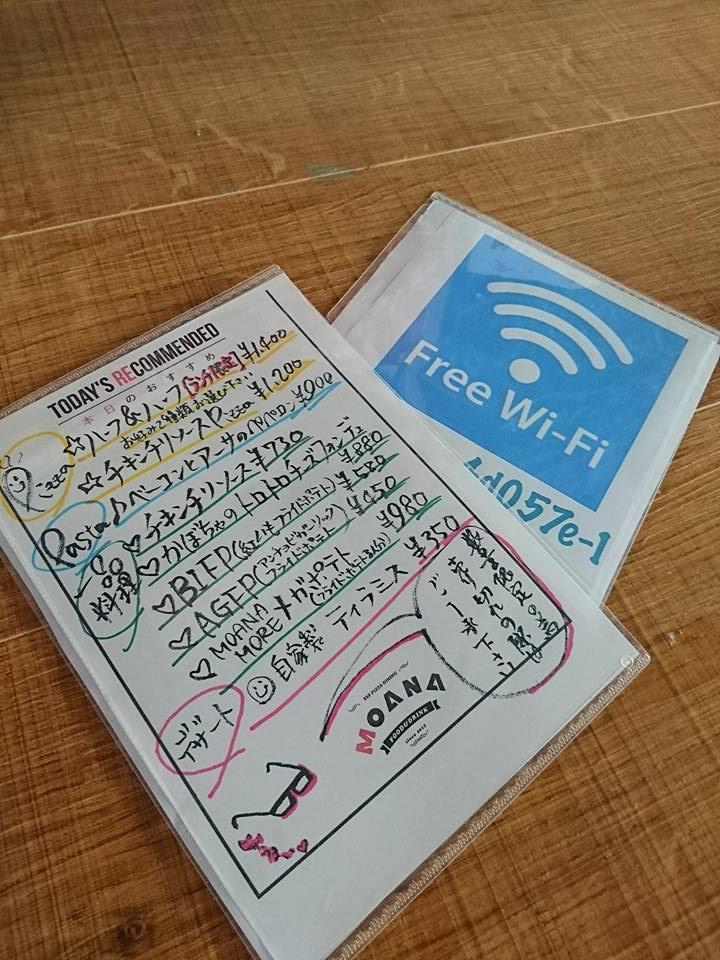 TODAY'S RECOMMENDED
本日のおすすめ
☆ハーフ&ハーフ [5分限定] ¥1,400
お好みで2種類お選び下さい
☆チキンチリソース Pizza ¥1,200
Pizza
Pasta
♪ベーコンとアーサのペペロン ¥900
一品料理
♡チキンチリソース ¥730
♡かぼちゃのトロトロチーズフォンデュ ¥880
♡BIFP(紅いもフライドポテト) ¥580
♡AGFP(アンチョビガーリックフライドポテト)
♡MOANA MORE メガポテト ¥980
デザート
☺自家製 ティラミス ¥350
数量限定の為
売り切れの際は
ご了承下さい
MOANA
FOOD&DRINK
Since 2017
Free Wi-Fi
4d057e-1